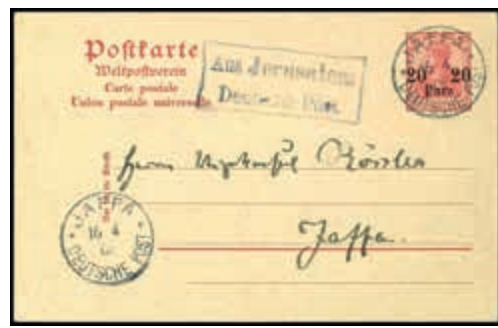 Postkarte
Weltpostverein
Carte postale
Union postale universelle
Aus Jerusalem
Deutsche Post
JAFFA
16 4
DEUTSCHE POST
20 20
Para
Herrn Vizekonsul Rössler
Jaffa.
JAFFA
16 4
DEUTSCHE POST